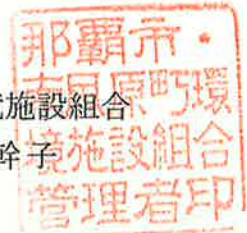 施設組合
幹子
那覇市・
南風原町環
境施設組合
管理者印